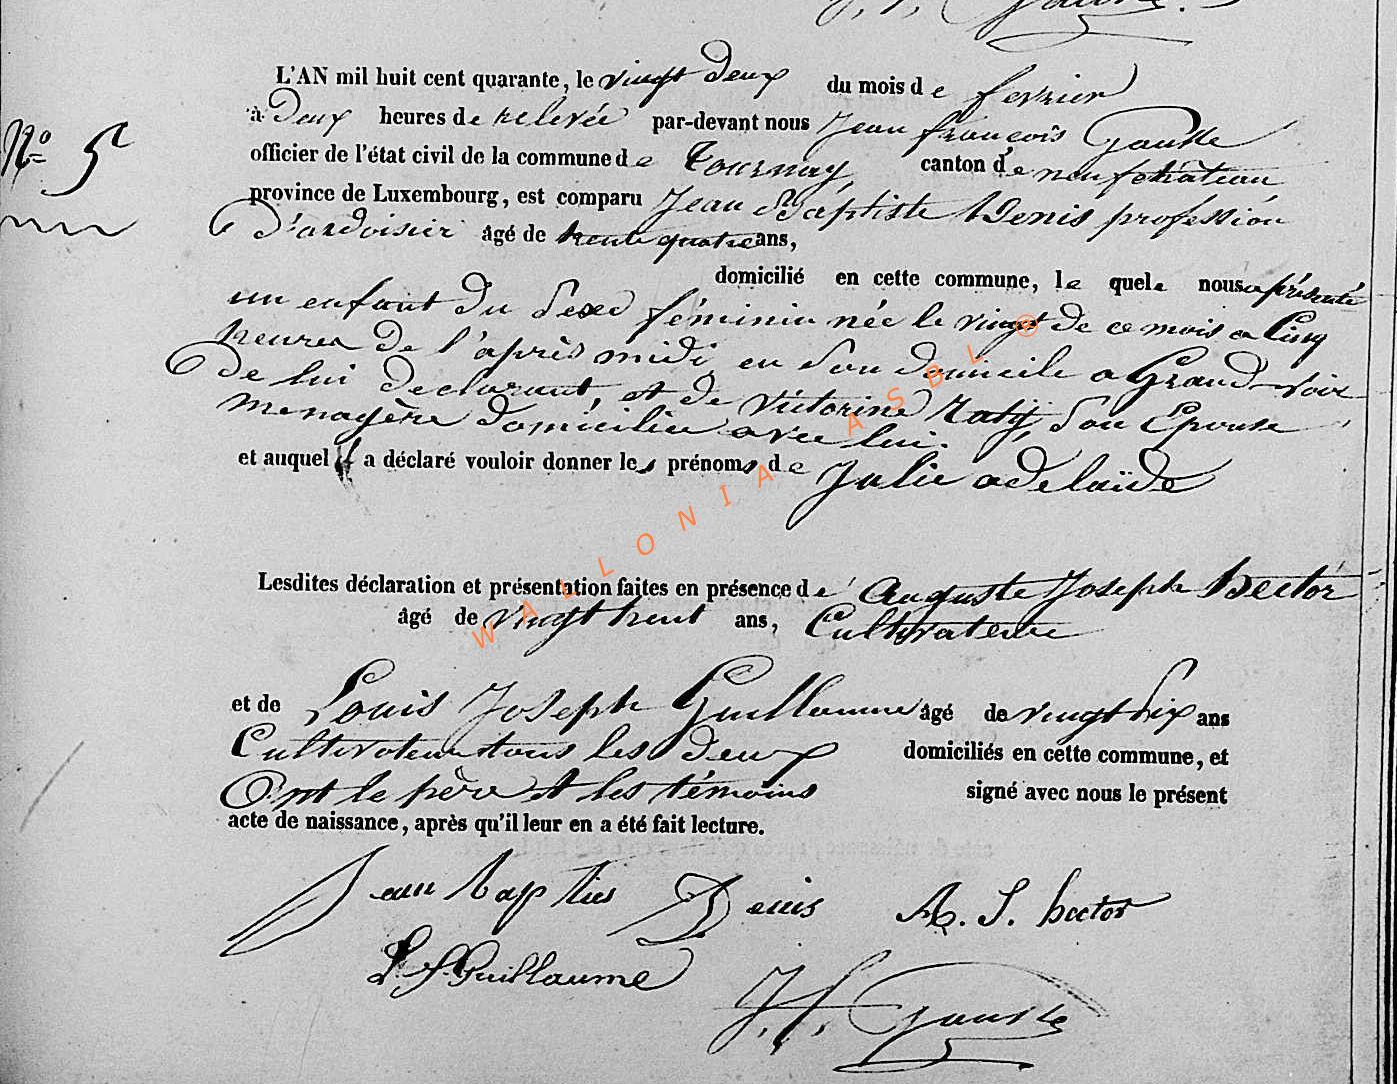 L'AN mil huit cent quarante, le vingt deux du mois de fevrier
à Deux heures de relevée par-devant nous Jean françois Gausse
N° 5
officier de l'état civil de la commune de Tournay canton de neufchâteau
province de Luxembourg, est comparu Jean Baptiste Denis profession
D'ardoisier âgé de trente quatre ans,
domicilié en cette commune, le quel nous a présenté
un enfant du Sexe féminin née le vingt de ce mois a Cinq
heures de l'après midi en Son domicile a Grandvoir
De lui Declarant, et de Victorine Raty Son Epouse
menagère domiciliée avec lui.
et auquel il a déclaré vouloir donner les prénoms de Julie adelaïde
Lesdites déclaration et présentation faites en présence de Auguste Joseph Hector
âgé de vingt huit ans, Cultivateur
et de Louis Joseph Guillaume âgé de vingt Six ans
Cultivateur tous les deux domiciliés en cette commune, et
Ont le père et les témoins signé avec nous le présent
acte de naissance, après qu'il leur en a été fait lecture.
Jean baptiste Denis A. J. hector
L. J. Guillaume
J. f. Gausse
WALLONIA ASBL ®